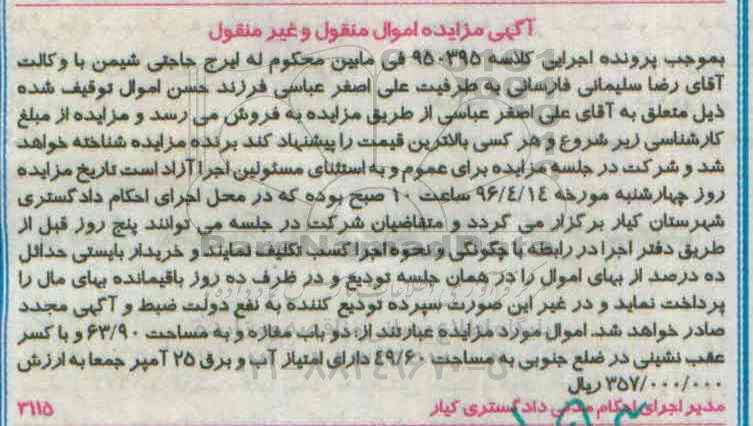 آگهی مزایده اموال منقول و غیر منقول
بموجب پرونده اجرایی کلاسه ۹۵۰۳۹۵ فی مابین محکوم له ایرج حاجتی شیمن با وکالت
آقای رضا سلیمانی فارسانی به طرفیت علی اصغر عباسی فرزند حسن اموال توقیف شده
ذیل متعلق به آقای علی اصغر عباسی از طریق مزایده به فروش می رسد و مزایده از مبلغ
کارشناسی زیر شروع و هر کسی بالاترین قیمت را پیشنهاد کند برنده مزایده شناخته خواهد
شد و شرکت در جلسه مزایده برای عموم و به استثنای مسئولین اجرا آزاد است تاریخ مزایده
روز چهارشنبه مورخه ۹۶/۴/۱۴ ساعت ۱۰ صبح بوده که در محل اجرای احکام دادگستری
شهرستان کیار برگزار می گردد و متقاضیان شرکت در جلسه می توانند پنج روز قبل از
طریق دفتر اجرا در رابطه با چگونگی و نحوه اجرا کسب تکلیف نمایند و خریدار بایستی حداقل
ده درصد از بهای اموال را در همان جلسه تودیع و در ظرف ده روز باقیمانده بهای مال را
پرداخت نماید و در غیر این صورت سپرده تودیع کننده به نفع دولت ضبط و آگهی مجدد
صادر خواهد شد. اموال مورد مزایده عبارتند از: دو باب مغازه و به مساحت ۶۳/۹۰ و با کسر
عقب نشینی در ضلع جنوبی به مساحت ۴۹/۶۰ دارای امتیاز آب و برق ۲۵ آمپر جمعا به ارزش
۳۵۷/۰۰۰/۰۰۰ ریال
مدیر اجرای احکام مدنی دادگستری کیار ۳۱۱۵